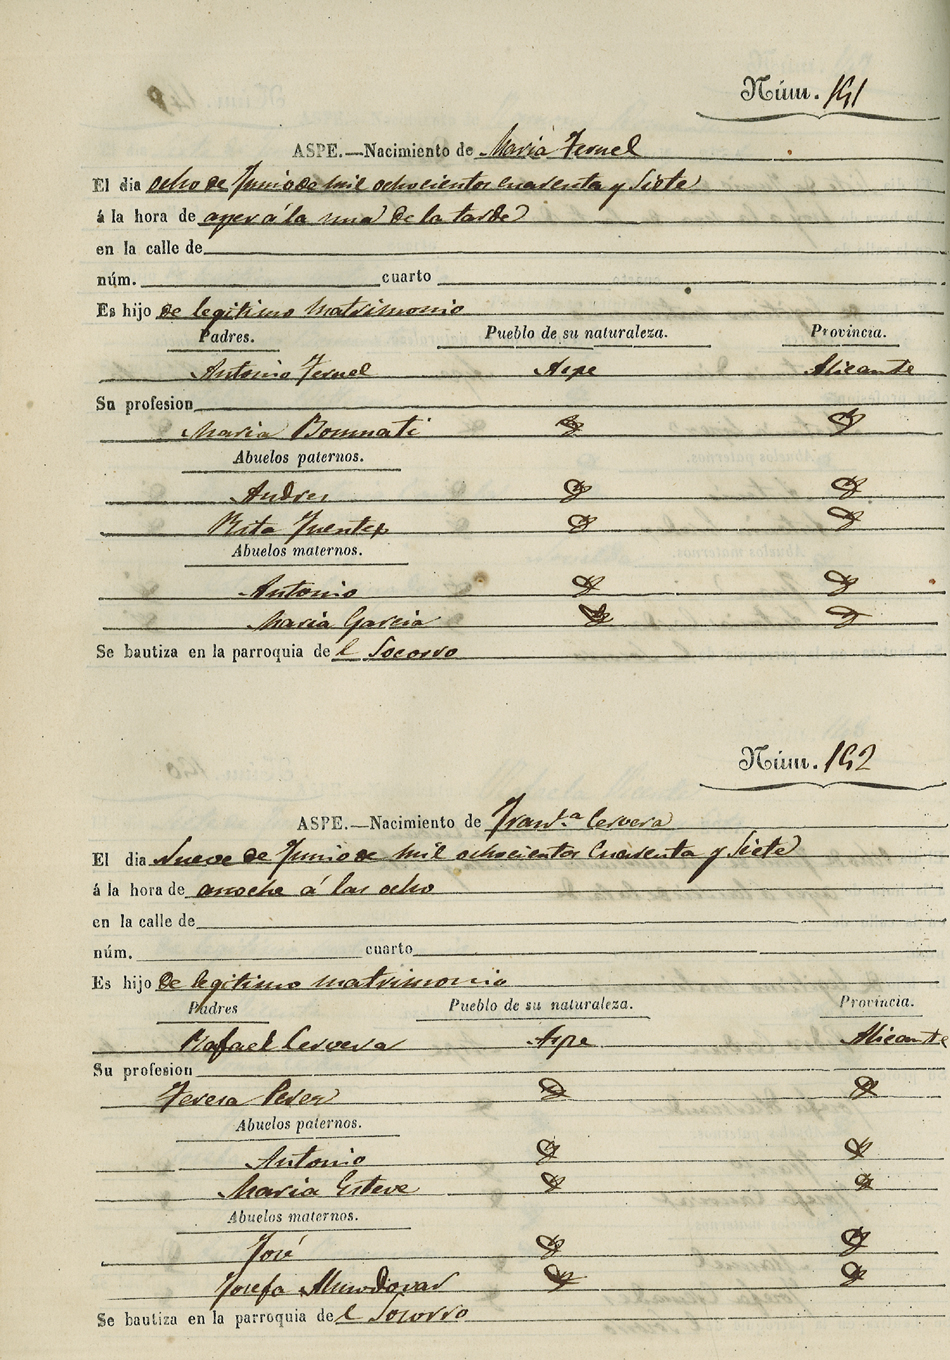 Núm. 151
ASPE.—Nacimiento de Maria Teruel
El dia ocho de Junio de mil ochocientos cuarenta y Siete
á la hora de ayer á la una de la tarde
en la calle de
núm. cuarto
Es hijo de legitimo matrimonio
Padres. Pueblo de su naturaleza. Provincia.
Antonio Teruel Aspe Alicante
Su profesion
Maria Bonmati
Abuelos paternos.
Andres
Rita Fuentes
Abuelos maternos.
Antonio
Maria Garcia
Se bautiza en la parroquia de l Socorro
Núm. 152
ASPE.—Nacimiento de Fran.ca Cervera
El dia Nueve de Junio de mil ochocientos Cuarenta y Siete
á la hora de anoche á las ocho
en la calle de
núm. cuarto
Es hijo de legitimo matrimonio
Padres Pueblo de su naturaleza. Provincia.
Rafael Cervera Aspe Alicante
Su profesion
Teresa Perez
Abuelos paternos.
Antonio
Maria Esteve
Abuelos maternos.
José
Josefa Almodovar
Se bautiza en la parroquia de l Socorro